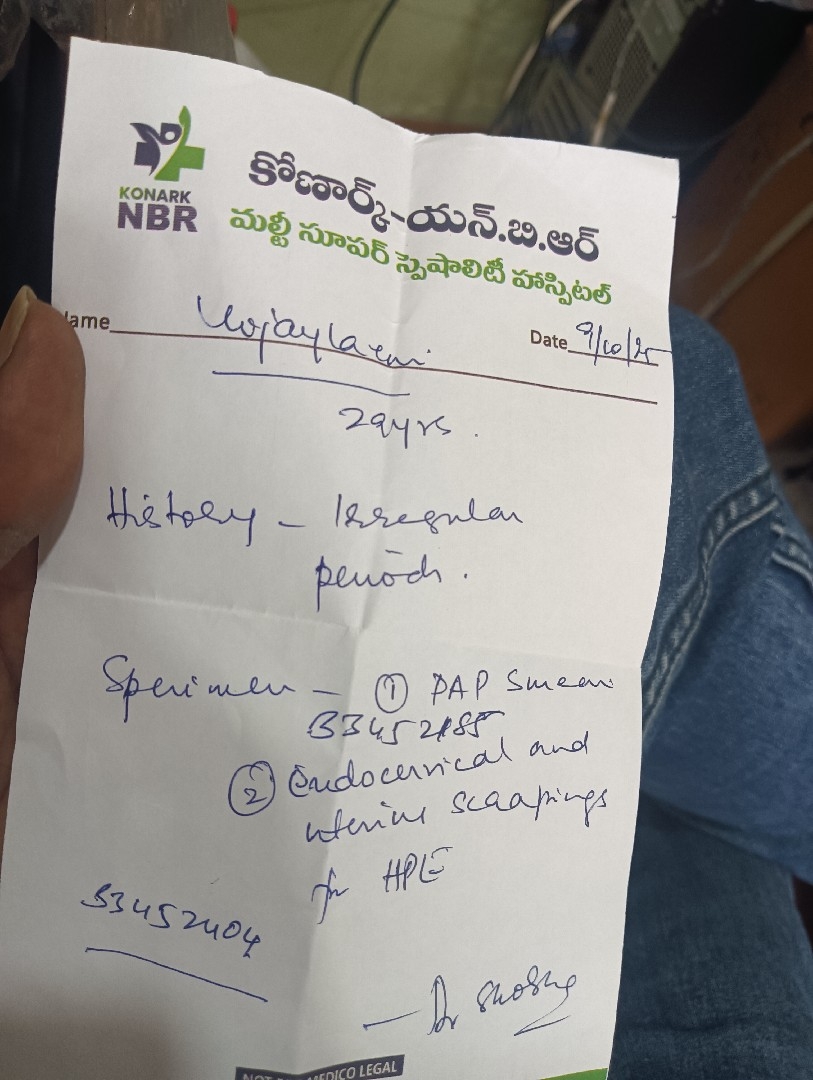 KONARK
NBR
కోణార్క్-యన్.బి.ఆర్
మల్టీ సూపర్ స్పెషాలిటీ హాస్పిటల్
ame
Date 9/10/25
29yrs.
History - Irregular
periods.
Specimen - ① PAP Smear
② Endocervical and
uterine scrapings
for HPE
53452404
- Dr
MEDICO LEGAL